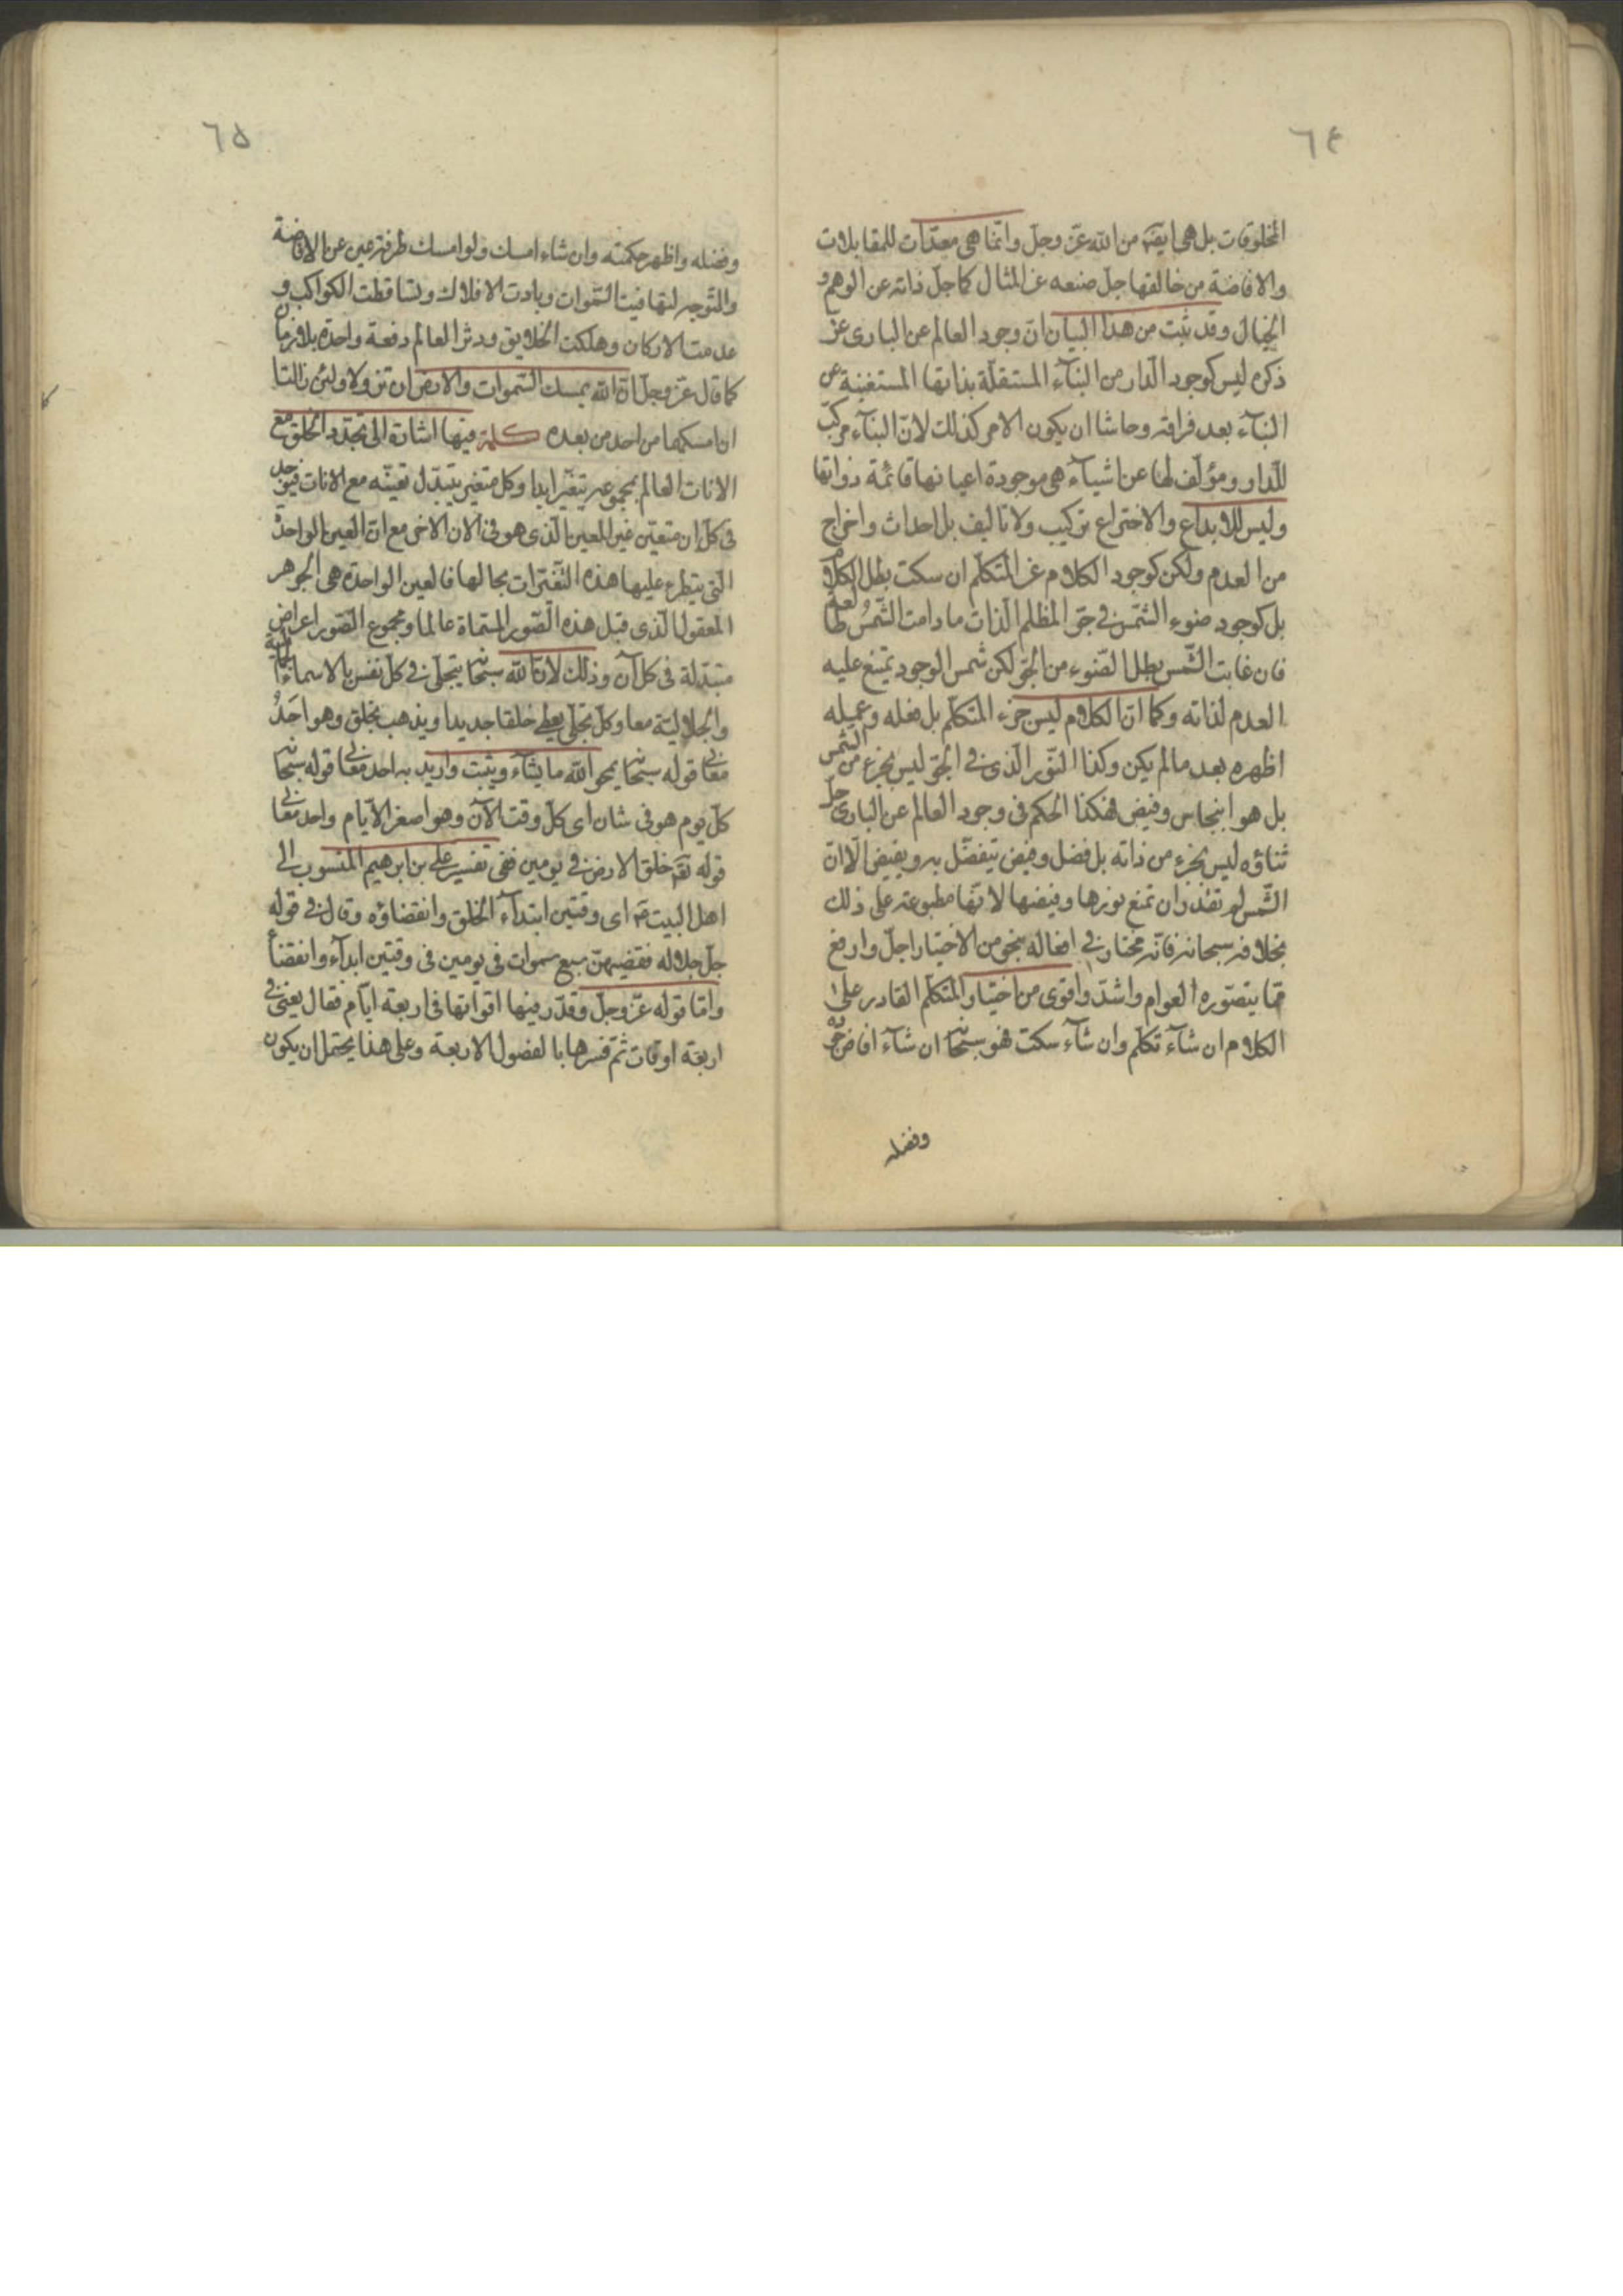 ٦٤
المخلوقات بل هى ايضا من الله عزّ وجلّ وانّما هى معدّات للمقابلات
والافاضة من خالقها جلّ صنعه عن المثال كما جلّ ذاته عن الوهم و
الخيال وقد ثبت من هذا البيان انّ وجود العالم عن البارى عزّ
ذكره ليس كوجود الدار من البنّاء المستقلّة بذاتها المستغنية عن
البنّاء بعد فراقه وحاشا ان يكون الامر كذلك لانّ البنّاء مركّب
للدار ومؤلّف لها عن اشياء هى موجودة اعيانها قائمة ذواتها
وليس للابداع والاختراع تركيب ولا تاليف بل احداث واخراج
من العدم ولكن كوجود الكلام عن المتكلّم ان سكت بطل الكلام
بل كوجود ضوء الشمس فى جوّ المظلم الذات ما دامت الشمس طالعة
فان غابت الشمس بطل الضوء من الجوّ لكن شمس الوجود يمتنع عليه
العدم لذاته وكما انّ الكلام ليس جزء المتكلّم بل فعله وعمله
اظهره بعد ما لم يكن وكذا النّور الّذى فى الجوّ ليس بجزء من الشمس
بل هو انبجاس وفيض فهكذا الحكم فى وجود العالم عن البارى جلّ
ثناؤه ليس بجزء من ذاته بل فضل وفيض يتفضّل به ويفيض الّا انّ
الشّمس لم تقدر ان تمنع نورها وفيضها لانّها مطبوعة على ذلك
بخلافه سبحانه فانّه مختار فى افعاله بنحو من الاختيار اجلّ وارفع
ممّا يتصوّره العوام واشدّ واقوى من اختيار المتكلّم القادر على
الكلام ان شآء تكلّم وان شآء سكت فهو سبحانه ان شآء افاض جوده
وفضله
٦٥
وفضله واظهر حكمته وان شاء امسك ولو امسك طرفة عين عن الافاضة
والتّوجه لتهافتت السّموات وبادت الافلاك وتساقطت الكواكب و
عدمت الاركان وهلكت الخلايق ودثر العالم دفعة واحدة بلا زمان
كما قال عزّ وجلّ انّ الله يمسك السّموات والارض ان تزولا ولئن زالتا
ان امسكهما من احد من بعده كلمة فيها اشارة الى تجدّد الخلق مع
الانات العالم بمجموعه يتغيّر ابدا وكل متغيّر يتبدّل تعيّنه مع الانات فيوجد
فى كلّ ان متعيّن غير المعين الّذى هو فى الان الاخر مع انّ العين الواحدة
الّتى يتطرء عليها هذه التّغيّرات بحالها فالعين الواحدة هى الجوهر
المعقول الّذى قبل هذه الصّور المسمّاة عالما ومجموع الصّور اعراض
متبدّلة فى كل آن وذلك لانّ الله سبحانه يتجلّى فى كلّ نفس بالاسماء الجماليّة
والجلاليّة معا وكلّ تجلّى يعطى خلقا جديدا ويذهب بخلق وهو احد
معانى قوله سبحانه يمحو الله ما يشآء ويثبت واريد به احد معانى قوله سبحانه
كلّ يوم هو فى شان اى كلّ وقت الآن وهو اصغر الايّام واحد معانى
قوله تقم خلق الارض فى يومين ففى تفسير على بن ابرهيم المنسوب الى
اهل البيت ع اى وقتين ابتدآء الخلق وانقضاؤه وقال فى قوله
جلّ جلاله فقضيهنّ سبع سموات فى يومين فى وقتين ابدآء وانقضاء
وامّا قوله عزّ وجلّ وقدّر فيها اقواتها فى اربعة ايّام فقال يعنى فى
اربعة اوقات ثمّ فسّرها بالفصول الاربعة وعلى هذا يحتمل ان يكون